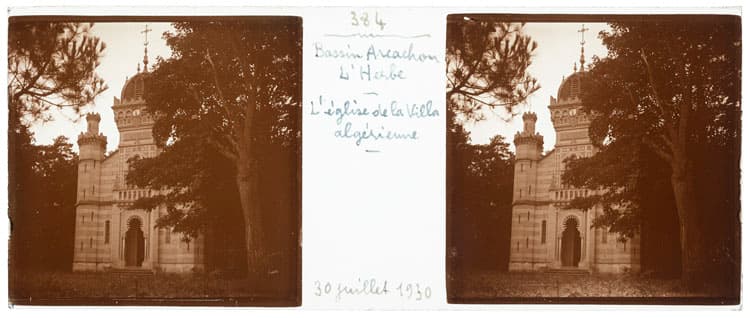 384
Bassin Arcachon
L'Herbe
L'église de la Villa
algérienne
30 juillet 1930